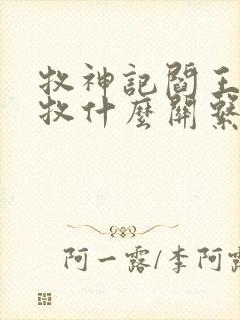 牧神記閻王
牧什麼關繫
阿一露/李阿露